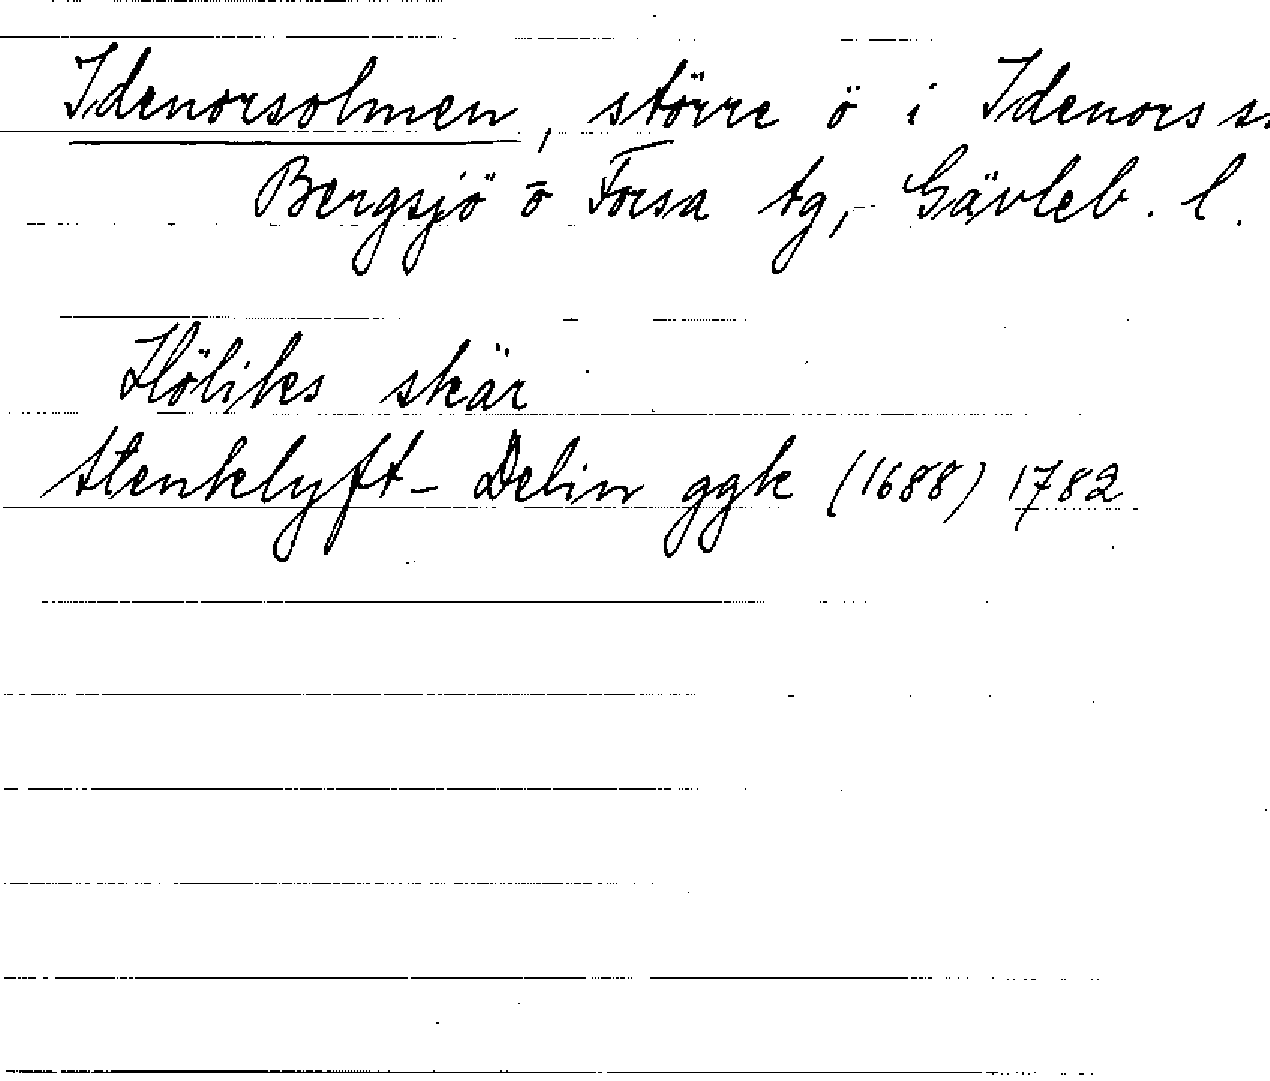 Idenorsolmen, större ö i Idenors s.
Bergsjö o Forsa tg, Gävleb. l.
Höliks skär
Stenklyft- Delin ggk (1688) 1782